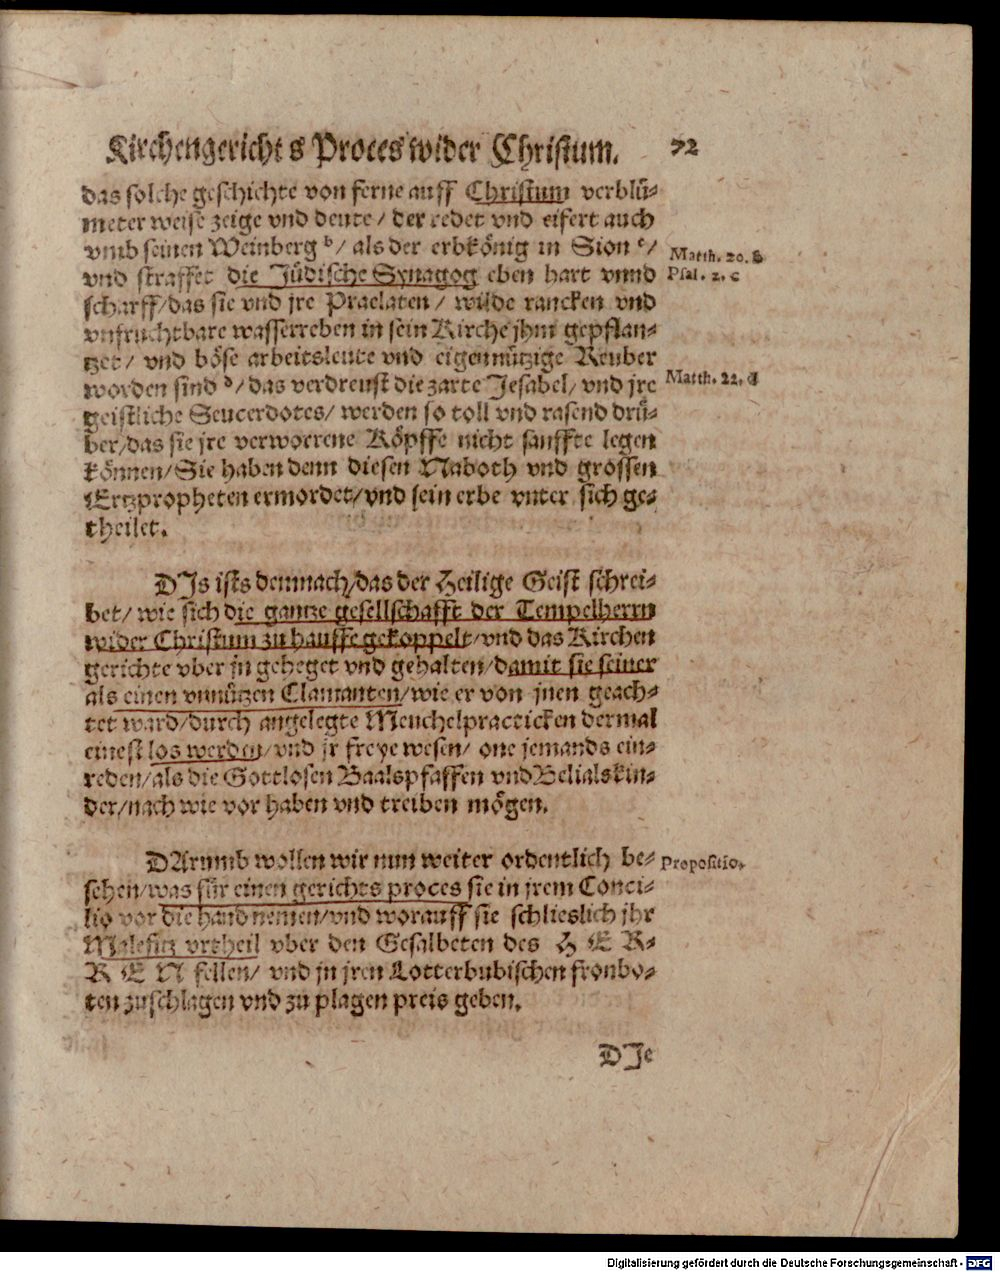 Kirchengericht s Proces wider Christum. 72
das solche geschichte von ferne auff Christum verblü-
meter weise zeige vnd deute/ der redet vnd eifert auch
vmb seinen Weinberg b/ als der erbkönig in Sion c/
Matth. 20. b
vnd straffet die Jüdische Synagog eben hart vnnd
Psal. 2. c
scharff/das sie vnd jre Praelaten/ wilde rancken vnd
vnfruchtbare wasserreben in sein Kirche jhm gepflan-
tzet/ vnd böse arbeitsleute vnd eigennützige Reuber
worden sind d/ das verdreust die zarte Jesabel/ vnd jre
Matth. 22. d
geistliche Seucerdotes/ werden so toll vnd rasend drü-
ber/das sie jre verworrene Köpffe nicht sanffte legen
können/Sie haben denn diesen Naboth vnd grossen
Ertzpropheten ermordet/vnd sein erbe vnter sich ge-
theilet.
DJs ists demnach/das der Heilige Geist schrei-
bet/ wie sich die gantze gesellschafft der Tempelherrn
wider Christum zu hauffe gekoppelt/vnd das Kirchen
gerichte vber jn geheget vnd gehalten/damit sie seiner
als einen vnnützen Clamanten/wie er von jnen geach-
tet ward/durch angelegte Meuchelpracticken dermal
einest los werden/vnd jr freye wesen/ one jemands ein-
reden/als die Gottlosen Baalspfaffen vnd Belialskin-
der/nach wie vor haben vnd treiben mögen.
DArumb wollen wir nun weiter ordentlich be-
Propositio.
sehen/was für einen gerichts proces sie in jrem Conci-
lio vor die hand nemen/vnd worauff sie schlieslich jhr
Malefitz vrtheil vber den Gesalbeten des H E R-
R E N fellen/ vnd jn jren Lotterbubischen fronbo-
ten zuschlagen vnd zu plagen preis geben.
DJe
Digitalisierung gefördert durch die Deutsche Forschungsgemeinschaft - DFG